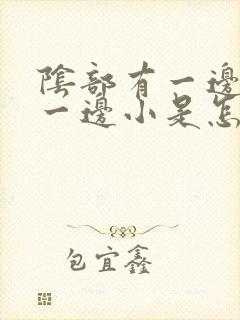 陰部有一邊
一邊小是怎
包宜鑫